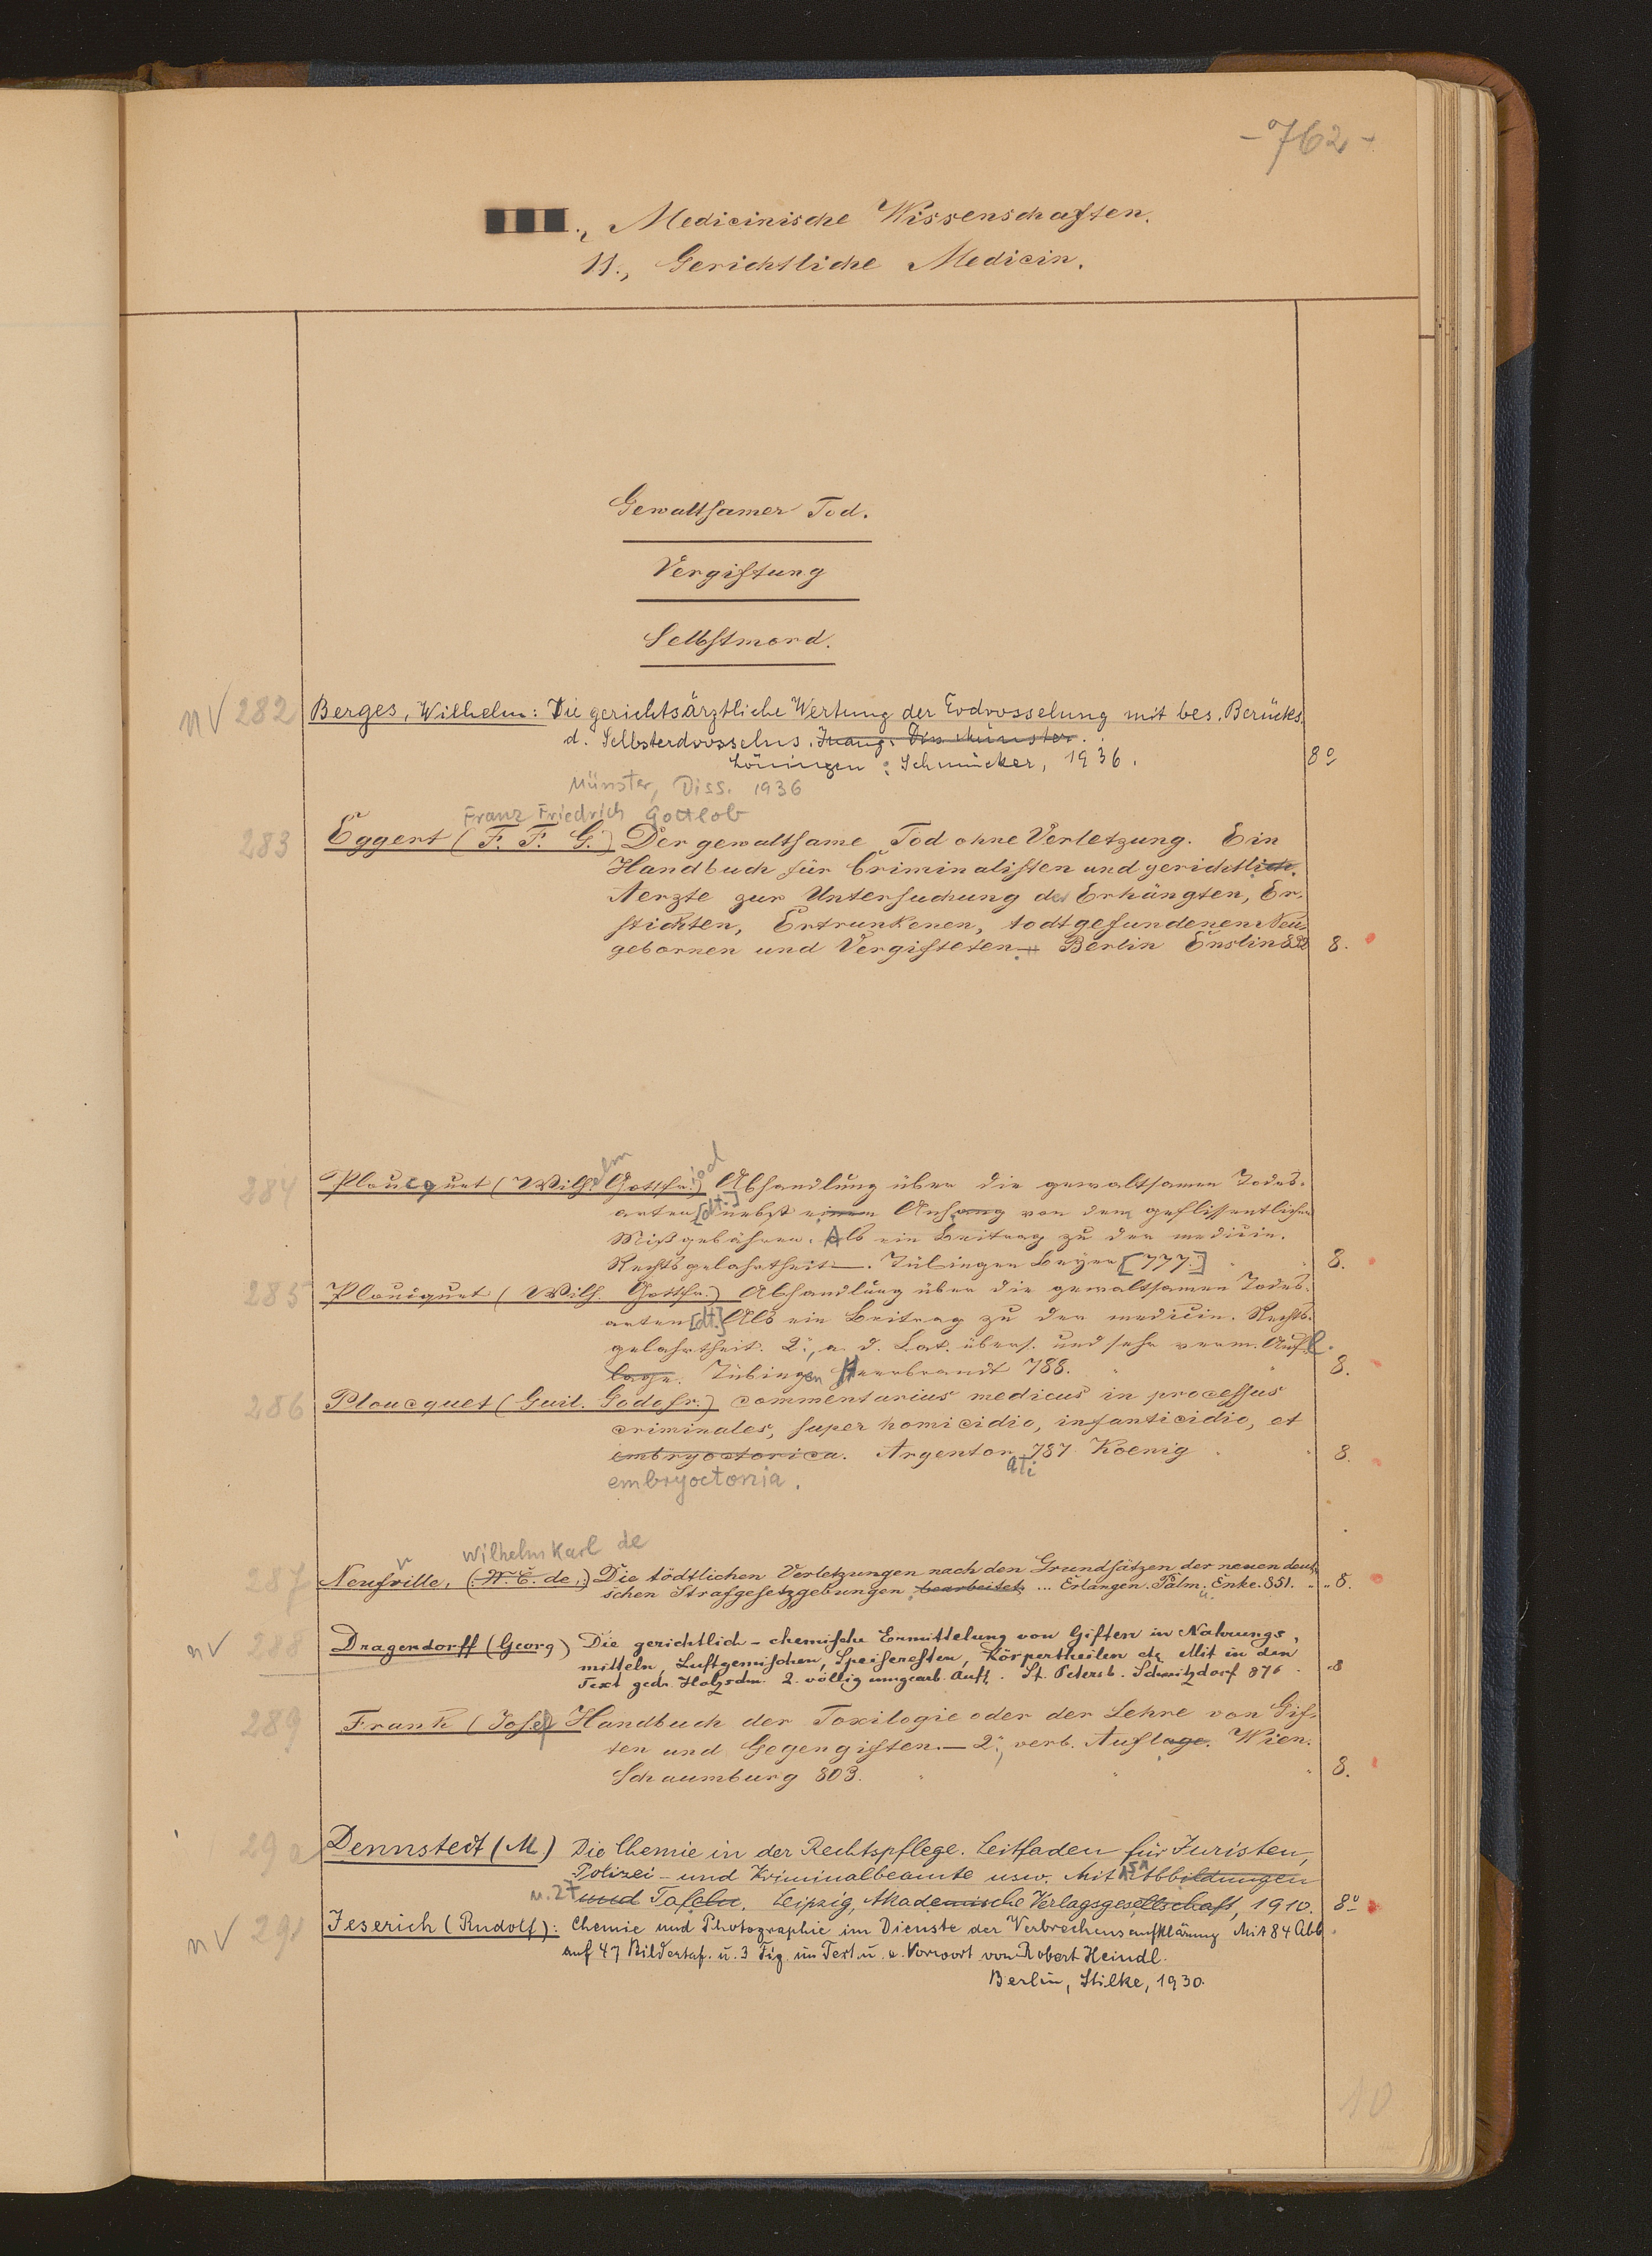 - 762 -
., Medicinische Wissenschaften.
11., Gerichtliche Medicin.
Gewaltsamer Tod.
Vergiftung
Selbstmord.
nV 282 Berges, Wilhelm: Die gerichtsärztliche Wertung der Erdrosselung mit bes. Berücks.
d. Selbsterdrosselns. Inaug. Diss. Münster.
Löningen: Schmücker, 1936. 8°
Münster, Diss. 1936
Franz Friedrich Gottlob
283 Eggert (F. F. G.) Der gewaltsame Tod ohne Verletzung. Ein
Handbuch für Criminalisten und gerichtlich.
Aerzte zur Untersuchung der Erhängten, Er-
stickten, Ertrunkenen, todtgefundenen Neu-
gebornen und Vergifteten. — Berlin Enslin 832 8.
284 Ploucquet (Wilhelm Gottfried) Abhandlung über die gewaltsamen Todes-
arten [dt.] nebst einem Anhang von dem geflissentlichen
Mißgebähren. Als ein Beitrag zu der medicin.
Rechtsgelahrtheit —. Tübingen Beyer [777.] 8.
285 Ploucquet (Wilh. Gottfr.) Abhandlung über die gewaltsamen Todes-
arten [dt.] Als ein Beitrag zu der medicin. Rechts-
gelahrtheit. 2., a. d. Lat. übers. und sehr verm. Aufl.
lage. Tübingen Heerbrandt 788. 8.
286 Ploucquet (Guil. Godofr.) commentarius medicus in processus
criminales, super homicidio, infanticidio, et
embryoctorica. Argentorati 787 Koenig 8.
embryoctonia.
Wilhelm Karl de
287 Neufville, (W. C. de.) Die tödtlichen Verletzungen nach den Grundsätzen der neuen deut-
schen Strafgesetzgebungen bearbeitet ... Erlangen. Palm u. Enke. 851. 8.
nV 288 Dragendorff (Georg) Die gerichtlich-chemische Ermittelung von Giften in Nahrungs-
mitteln, Luftgemischen, Speiseresten, Körpertheilen etc. Mit in den
Text gedr. Holzschn. 2. völlig umgearb. Aufl. St. Petersb. Schmitzdorf 876 8
289 Frank (Josef) Handbuch der Toxilogie oder der Lehre von Gif-
ten und Gegengiften. — 2., verb. Auflage. Wien.
Schaumburg 803. 8.
290 Dennstedt (M.) Die Chemie in der Rechtspflege. Leitfaden für Juristen,
Polizei- und Kriminalbeamte usw. Mit 151 Abbildungen
u. 27 und Tafeln. Leipzig, Akademische Verlagsgesellschaft, 1910. 8°
nV 291 Jeserich (Rudolf): Chemie und Photographie im Dienste der Verbrechensaufklärung Mit 84 Abb.
auf 47 Bildertaf. u. 3 Fig. im Text u. e. Vorwort von Robert Heindl.
Berlin, Stilke, 1930.
10